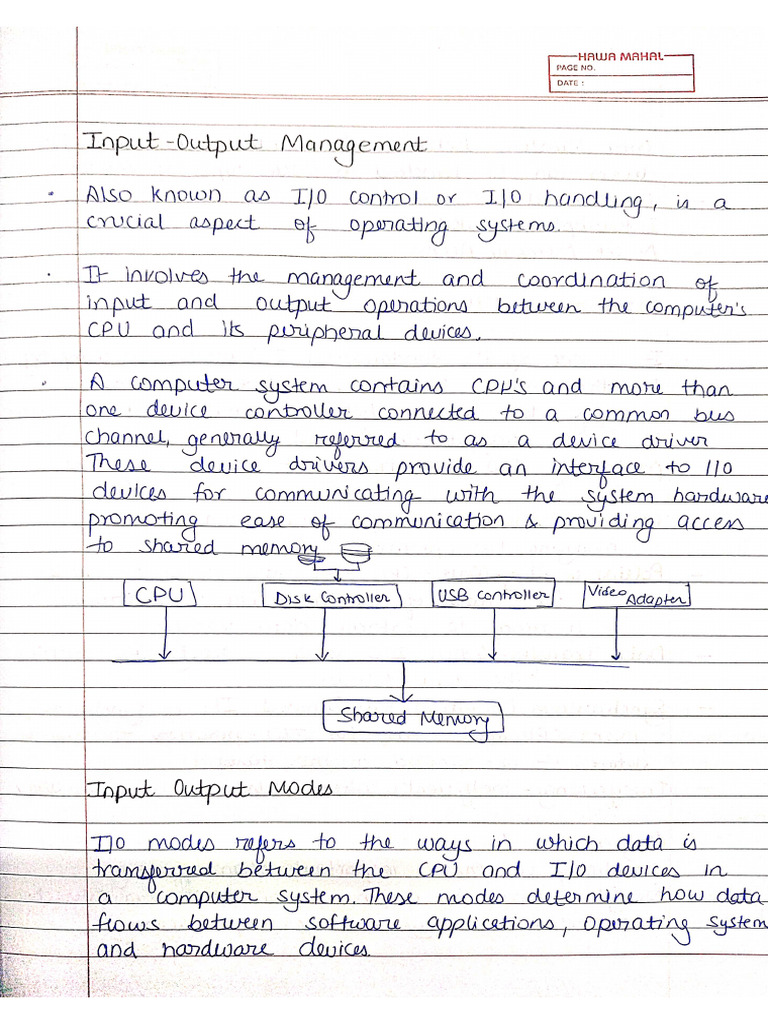 HAWA MAHAL
PAGE NO.
DATE :
Input-Output Management
• Also known as I/O control or I/O handling, is a
crucial aspect of operating systems.
• It involves the management and coordination of
input and output operations between the computer's
CPU and its peripheral devices.
• A computer system contains CPU's and more than
one device controller connected to a common bus
channel, generally referred to as a device driver
These device drivers provide an interface to I/O
devices for communicating with the system hardware
promoting ease of communication & providing access
to shared memory
CPU
Disk Controller
USB Controller
Video Adapter
Shared Memory
Input Output Modes
I/O modes refers to the ways in which data is
transferred between the CPU and I/O devices in
a computer system. These modes determine how data
flows between software applications, operating system
and hardware devices.